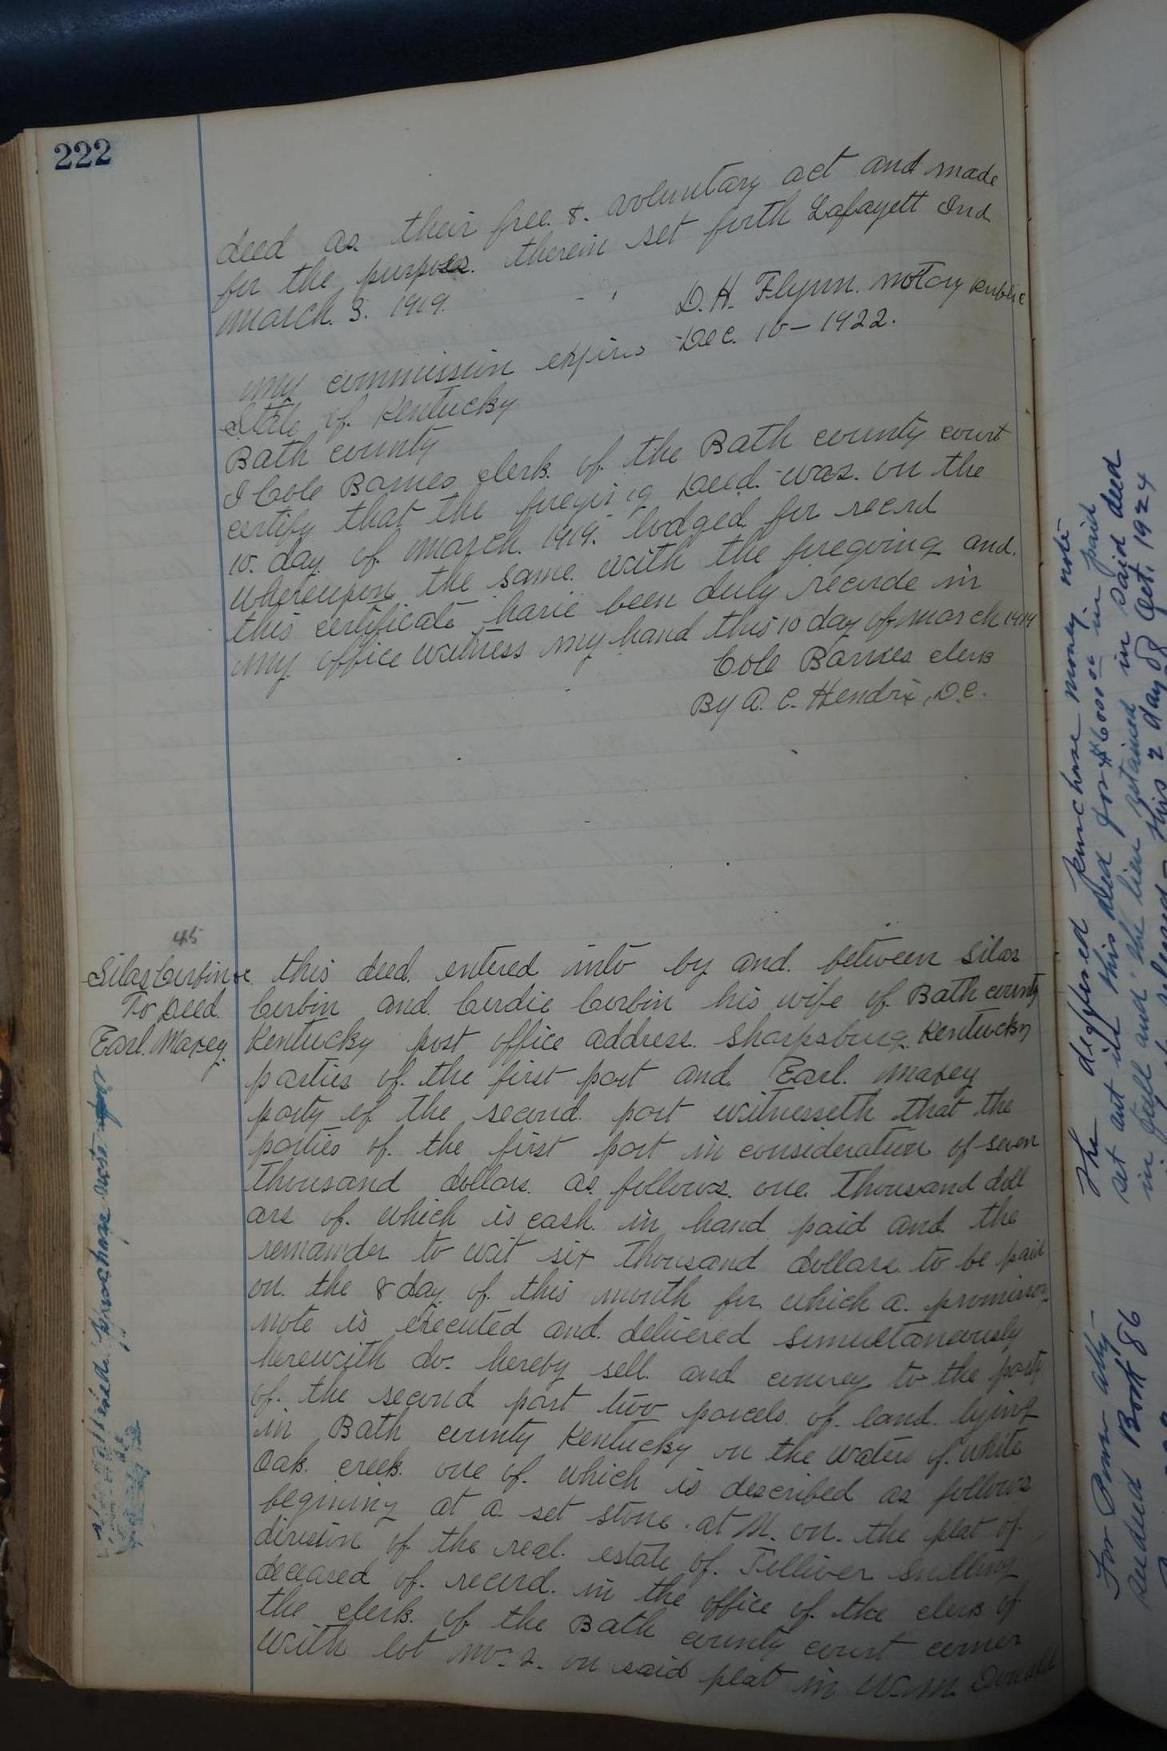 222
deed as their free & voluntary act and made
for the purposes. therein set forth Lafayett Ind.
March. 3. 1919.
D. H. Flynn. notary Public
my commission expires Dec. 10 – 1922.
State of Kentucky
Bath county
I Cole Barnes clerk of the Bath county court
certify that the foregoing Deed was. on the
10. day of march. 1919. lodged for record
whereupon the same. with the foregoing and.
this certificate have been duly recorde in
my office witness my hand this 10 day of march 1919
Cole Barnes clerk
By A. C. Hendrix, D.C.
45
Silas Corbin &c
To Deed
Earl. Maxey.
this deed entered into by and between Silas
Corbin and Curdie Corbin his wife of Bath county
Kentucky post office address. Sharpsburg. Kentucky
parties of the first part and Earl. Maxey
party of the second part witnesseth that the
parties of. the first part in consideration of seven
thousand dollars as follows. one thousand doll
ars of. which is cash in hand paid and the
remainder to wit six thousand dollars to be paid
on. the 8 day of. this month for. which a. promissory
note is executed and delivered simultaneously
herewith do. hereby sell and convey to the party
of. the second part two parcels of. land. lying
in Bath county Kentucky on the waters of. white
Oak. creek. one of. which is described as follows
begining at a set stone. at M. on. the plat of
division of the real. estate of. Tilliver Snelling
deceased of. record. in the office of. the clerk of
the clerk. of the Bath county court corner
with lot no. 2. on said plat in
The differed purchase money note
set out in this deed for $6000.00 in paid
in full and the lien retained in said deed
released – this 2 day of Oct. 1924
For Power atty
see deed Book 86